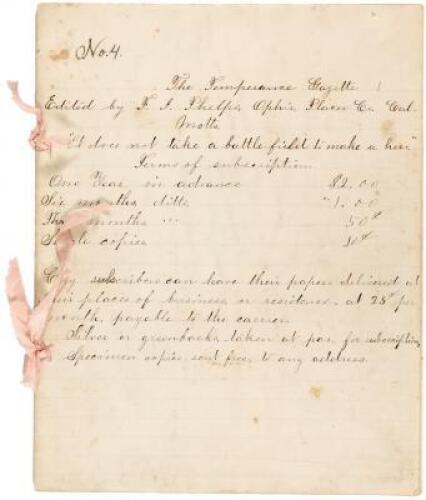 No. 4.
The Temperance Gazette
Edited by F. J. Phelps, Ophir Placer Co. Cal.
Motto
"It does not take a battle field to make a hero"
Terms of subscription
One Year in advance $2.00
Six months ditto "1.00
months " 50¢
copies 10¢
City subscribers can have their papers delivered at
their places of business or residence, at 25¢ per
month, payable to the carrier.
Silver or greenbacks taken at par for subscription
Specimen copies sent free to any address.